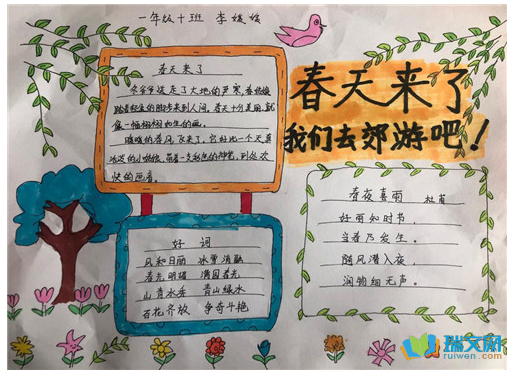 一年级十班 李媛媛
春天来了
我们去郊游吧！
春天来了
冬爷爷送走了大地的严寒，春姑娘
踏着轻盈的脚步来到人间。春天十分美丽，就
像一幅栩栩如生的画。
暖暖的春风飞来了，它好比一个天真
活泼的小姑娘，带着一支彩色的神笔，到处欢
快的画着。
好词
风和日丽 冰雪消融
春光明媚 满园春光
山青水秀 青山绿水
百花齐放 争奇斗艳
春夜喜雨 杜甫
好雨知时节，
当春乃发生。
随风潜入夜，
润物细无声。
瑞文网
ruiwen.com